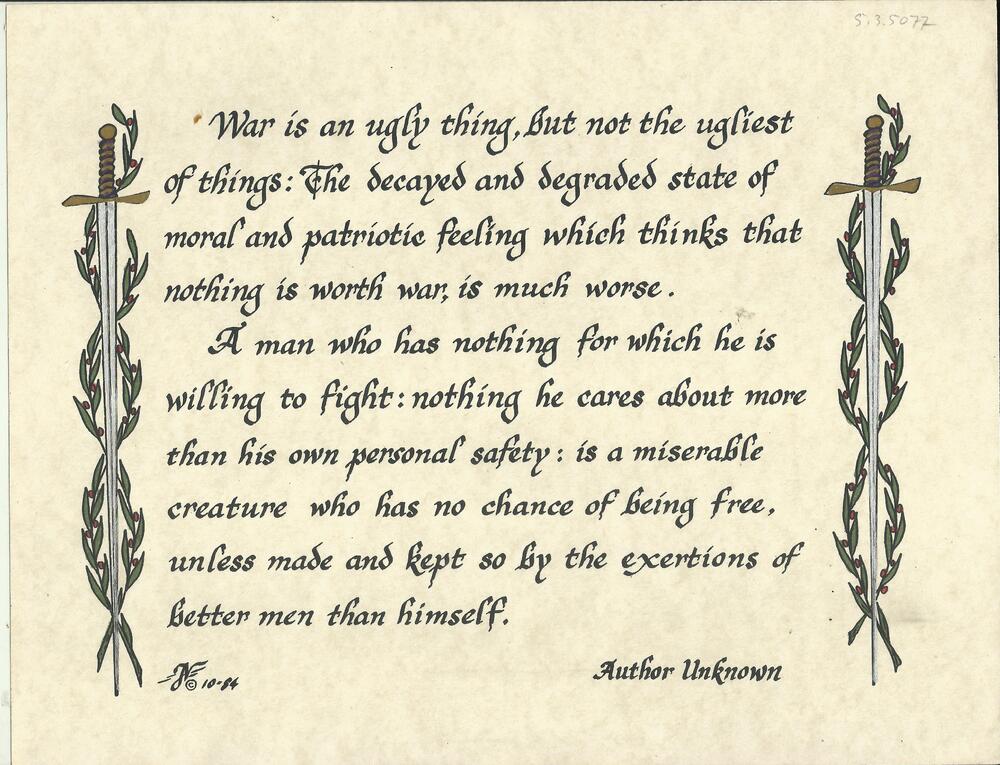 5.3.5077
War is an ugly thing, but not the ugliest
of things: The decayed and degraded state of
moral and patriotic feeling which thinks that
nothing is worth war, is much worse.
A man who has nothing for which he is
willing to fight: nothing he cares about more
than his own personal safety: is a miserable
creature who has no chance of being free,
unless made and kept so by the exertions of
better men than himself.
© 10-84
Author Unknown